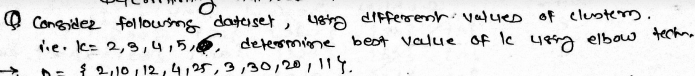 Q Consider following dataset, using different values of clusters.
i.e. k= 2,3,4,5, determine best value of k using elbow techn.
→ D = { 2,10,12,4,25,3,30,20,11}.